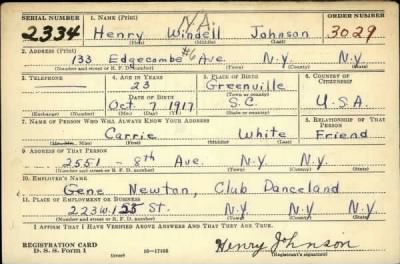 SERIAL NUMBER 1. NAME (Print) N.A. ORDER NUMBER
2334 Henry Windell Johnson 3029
(First) (Middle) (Last)
2. ADDRESS (Print)
133 Edgecombe Ave. #6 N.Y. N.Y.
(Number and street or R. F. D. number) (Town) (County) (State)
3. TELEPHONE 4. AGE IN YEARS 5. PLACE OF BIRTH 6. COUNTRY OF CITIZENSHIP
23 Greenville
DATE OF BIRTH (Town or county)
Oct. 7 1917 S.C. U.S.A.
(Exchange) (Number) (Mo.) (Day) (Yr.) (State or country)
7. NAME OF PERSON WHO WILL ALWAYS KNOW YOUR ADDRESS 8. RELATIONSHIP OF THAT PERSON
Carrie White Friend
(First) (Middle) (Last)
9. ADDRESS OF THAT PERSON
2551 - 8th Ave. N.Y. N.Y.
(Number and street or R. F. D. number) (Town) (County) (State)
10. EMPLOYER'S NAME
Gene Newton, Club Danceland
11. PLACE OF EMPLOYMENT OR BUSINESS
223 W. 125 St. N.Y. N.Y. N.Y.
(Number and street or R. F. D. number) (Town) (County) (State)
I AFFIRM THAT I HAVE VERIFIED ABOVE ANSWERS AND THAT THEY ARE TRUE.
REGISTRATION CARD
D. S. S. Form 1 (over) Henry Johnson
(Registrant's signature)